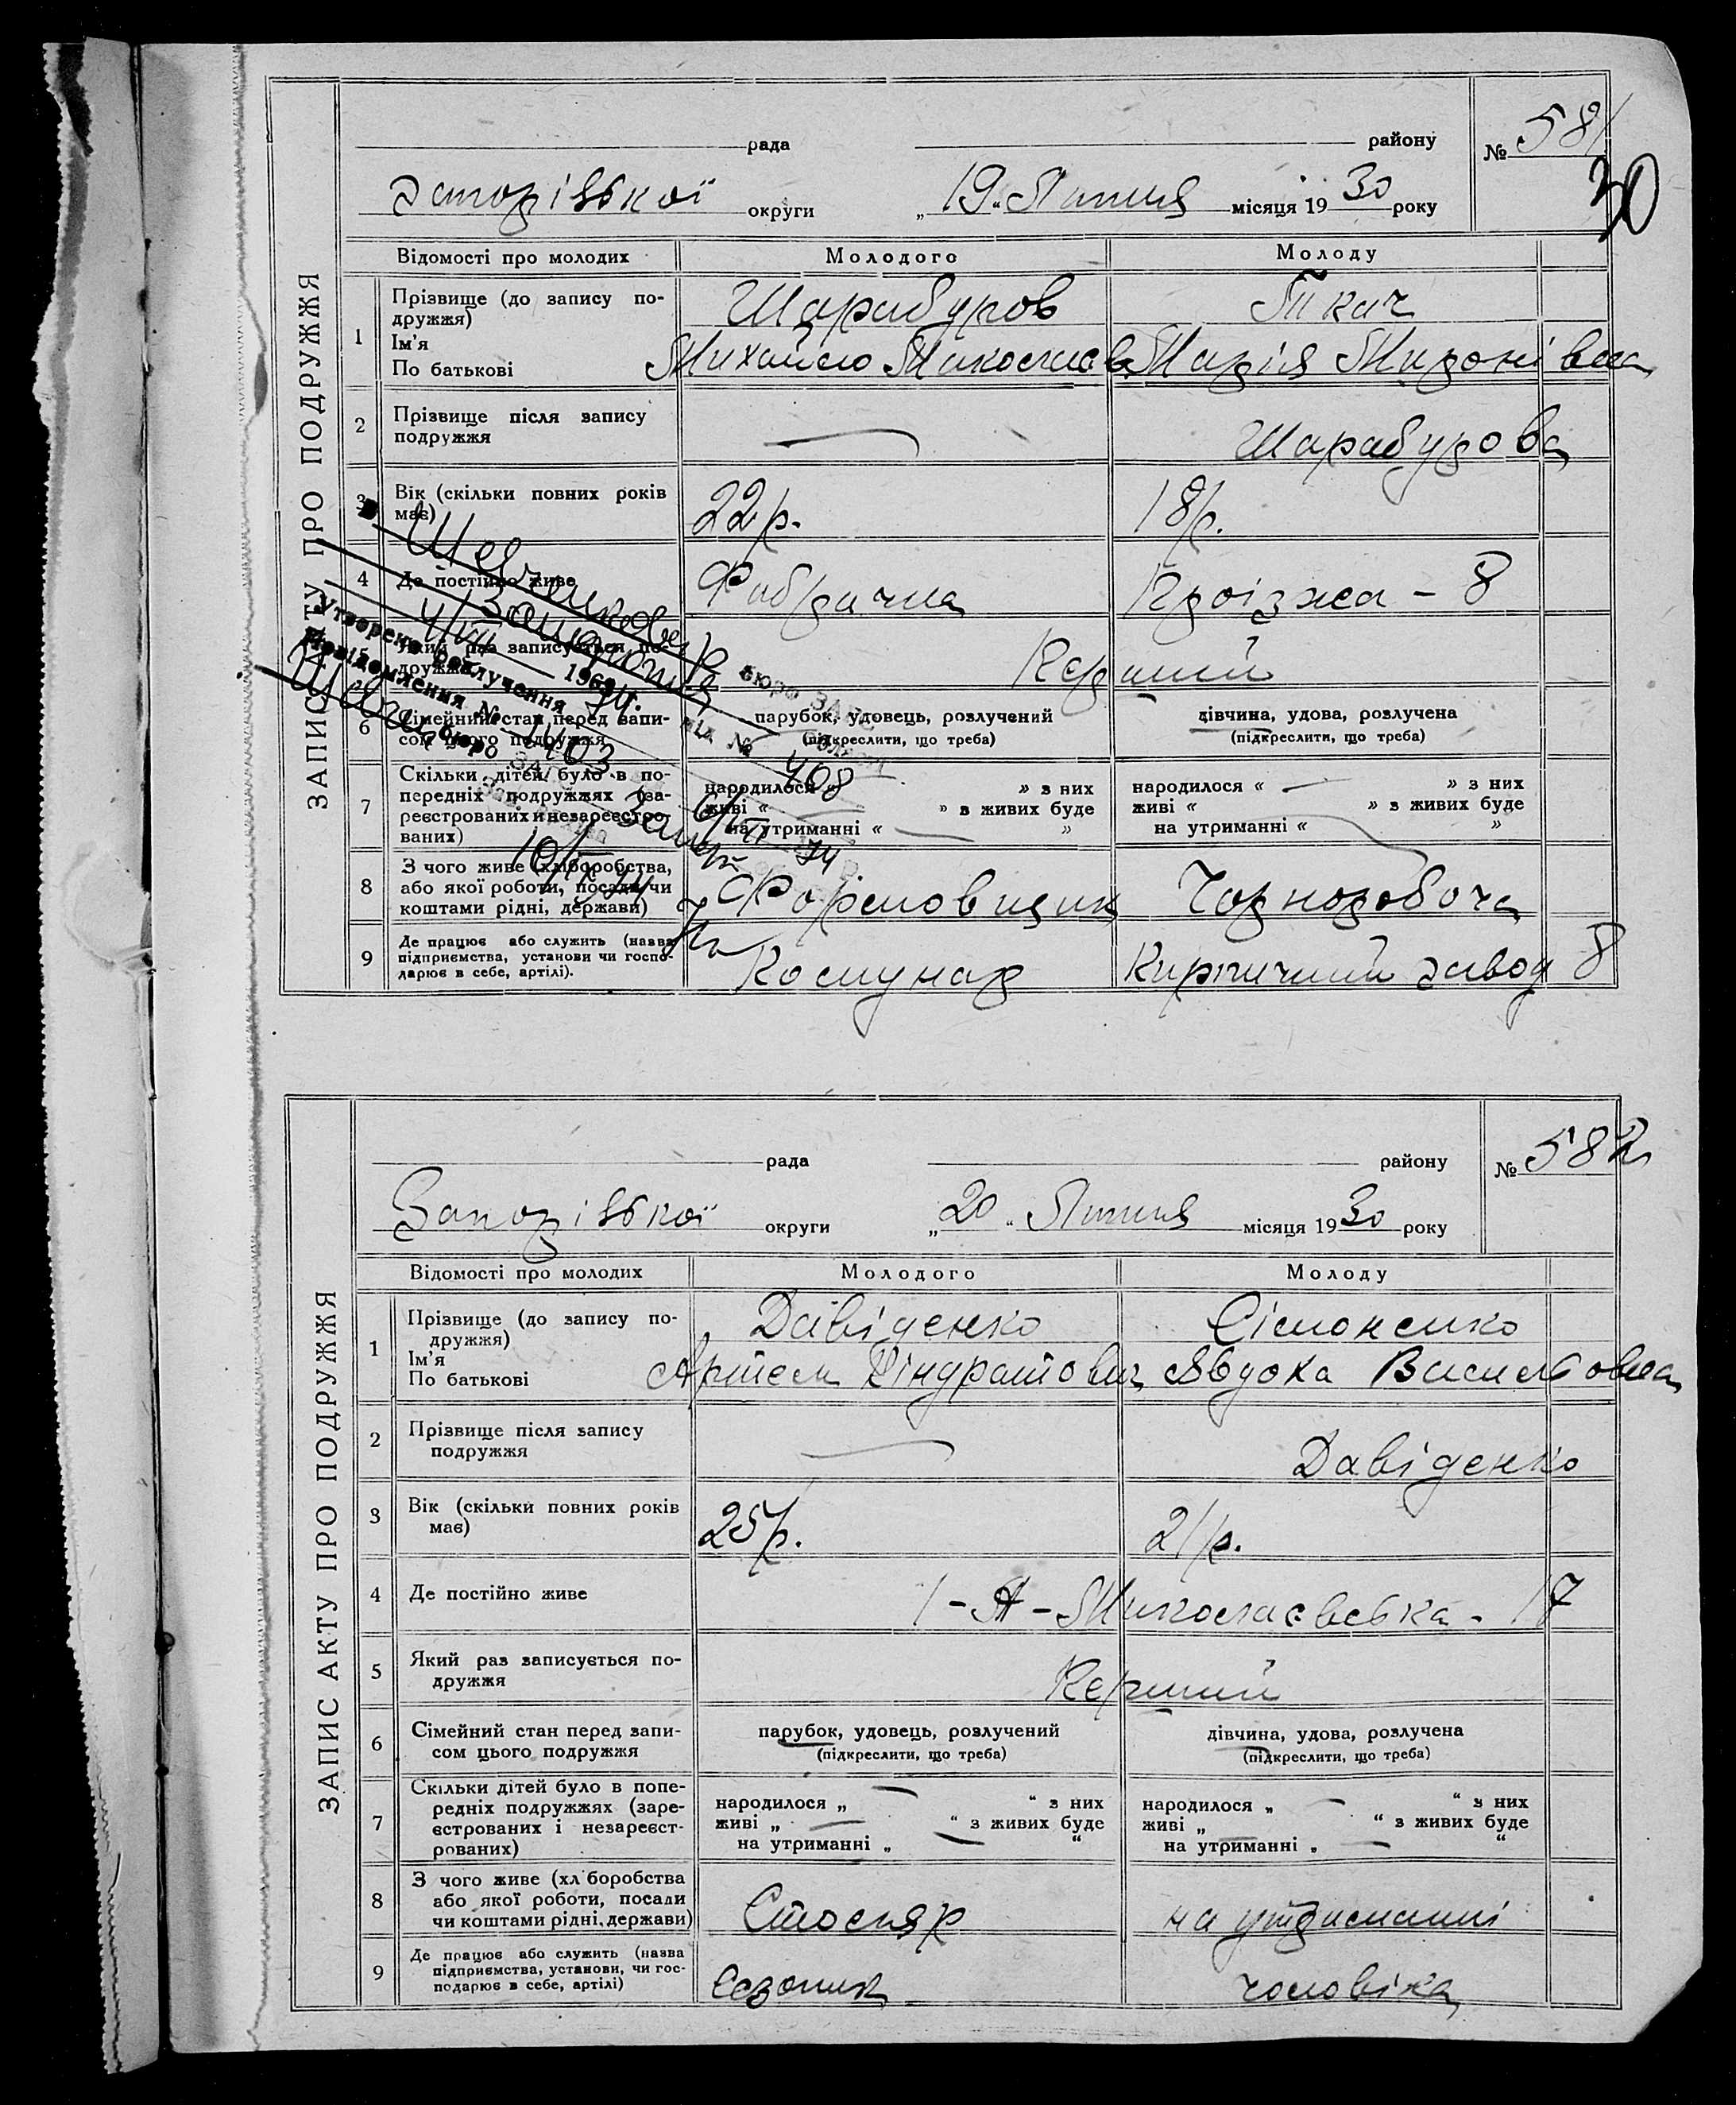 ЗАПИС АКТУ ПРО ПОДРУЖЖЯ
рада району № 581
30
Запорізької округи „19“ Липня місяця 1930 року
Відомості про молодих Молодого Молоду
1 Прізвище (до запису по- Шарабуров Ткач
дружжя)
Ім'я Михайло Миколаєв Марія Миронівна
По батькові
2 Прізвище після запису — Шарабурова
подружжя
3 Вік (скільки повних років 22 р. 18 р.
має)
4 Де постійно живе Фабрична Проїзжа - 8
Який раз записується по- Перший
дружжя
6 Сімейний стан перед запи- парубок, удовець, розлучений дівчина, удова, розлучена
сом цього подружжя (підкреслити, що треба) (підкреслити, що треба)
7 Скільки дітей було в по- народилося “ » з них народилося “ — » з них
передніх подружжях (за- живі “ » з живих буде живі “ » з живих буде
реєстрованих и незареєстро- на утриманні “ — » на утриманні “ »
ваних)
8 З чого живе (хліборобства, Формовщик Чорноробоча
або якої роботи, посади чи
коштами рідні, держави)
9 Де працює або служить (назва Комунар Кирпичний завод 8
підприємства, установи чи госпо-
дарює в себе, артілі).
Утворено розлучення
1969 р.
Повідомлення № 1403
бюро ЗАГС
бюро ЗАГС
від №
408
ЗАПИС АКТУ ПРО ПОДРУЖЖЯ
рада району № 582
Запорізької округи „20“ Липня місяця 1930 року
Відомості про молодих Молодого Молоду
1 Прізвище (до запису по- Давіденко Сімоненко
дружжя)
Ім'я Артем Кіндратович Явдоха Васильовна
По батькові
2 Прізвище після запису — Давіденко
подружжя
3 Вік (скільки повних років 25 р. 21 р.
має)
4 Де постійно живе 1-А-Миколаєвська - 17
5 Який раз записується по- Перший
дружжя
6 Сімейний стан перед запи- парубок, удовець, розлучений дівчина, удова, розлучена
сом цього подружжя (підкреслити, що треба) (підкреслити, що треба)
7 Скільки дітей було в попе- народилося „ — “ з них народилося „ — “ з них
редніх подружжях (заре- живі „ — “ з живих буде живі „ — “ з живих буде
єстрованих і незареєст- на утриманні „ — “ на утриманні „ — “
рованих)
8 З чого живе (хл боробства Столяр на утриманні
або якої роботи, посади
чи коштами рідні, держави)
9 Де працює або служить (назва Сезонник чоловіка
підприємства, установи, чи гос-
подарює в себе, артілі)